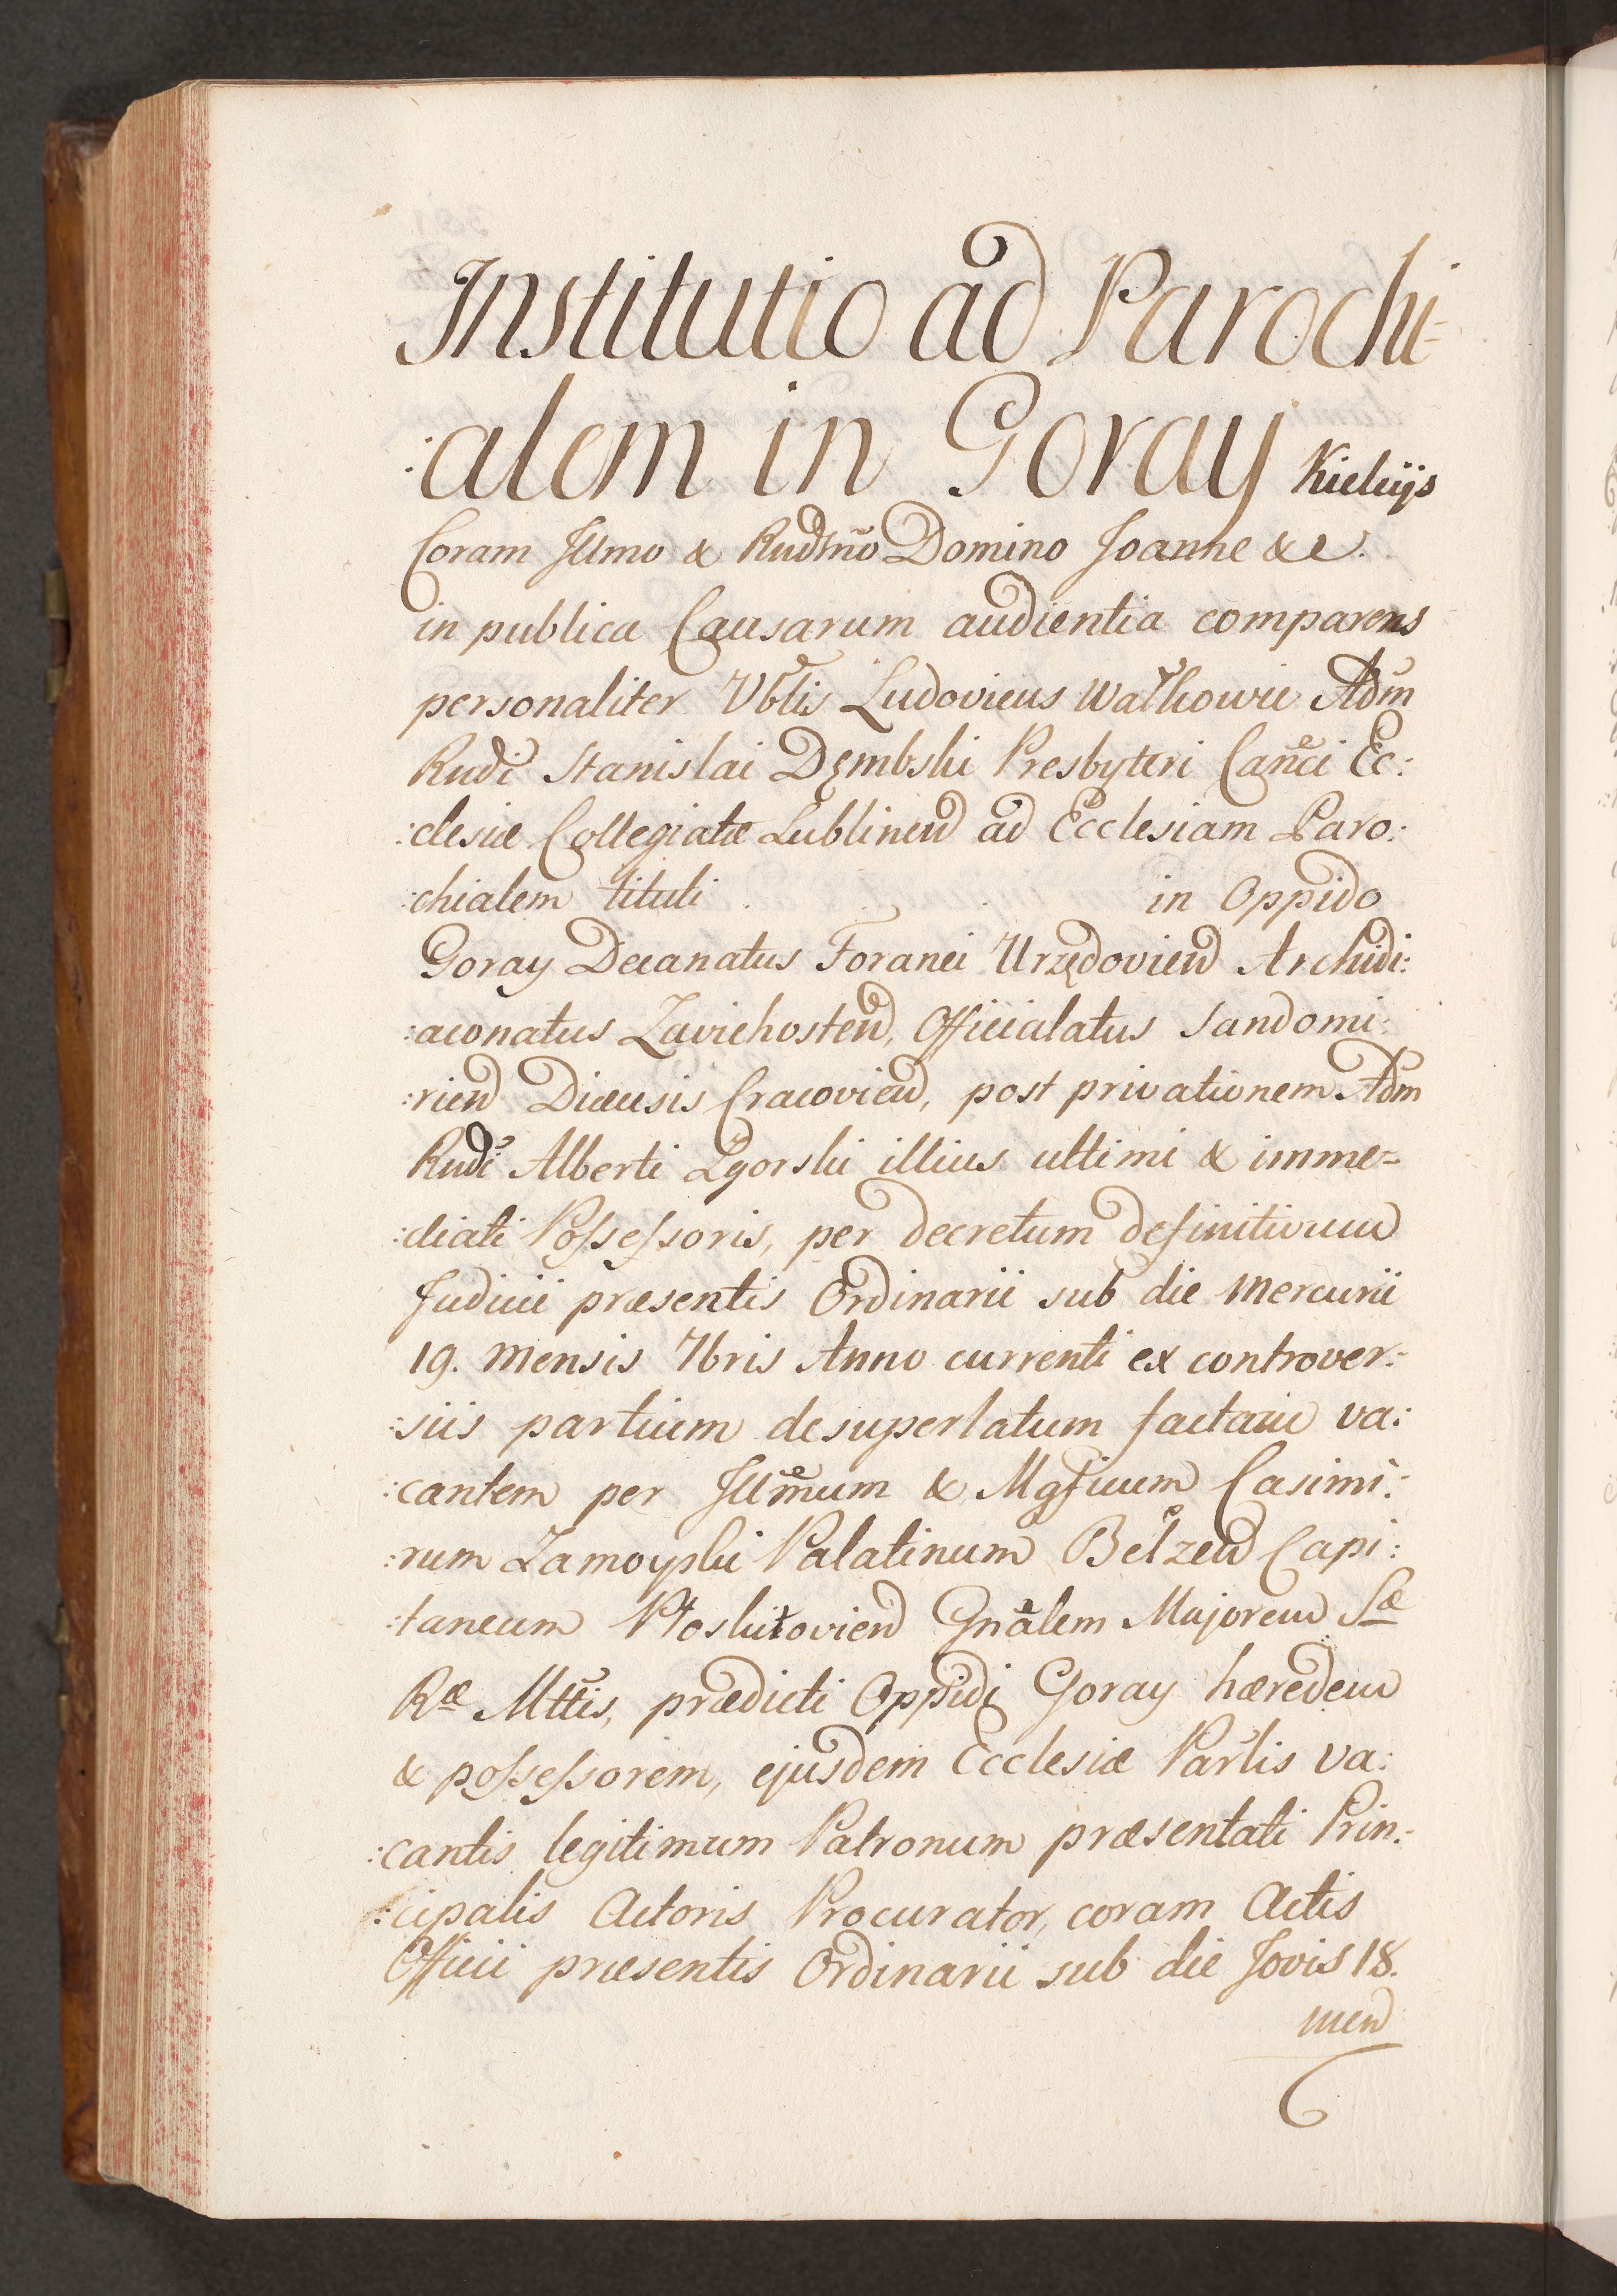 Institutio ad Parochi=
:alem in Goray Kieliijs
Coram Illmo & Rudsmo Domino Joanne &c.
in publica Causarum audientia comparens
personaliter Nblis Ludovicus Walkowic Adm
Rudi Stanislai Dęmbski Presbyteri Canci Ec:
:clesiæ Collegiatæ Lublinen ad Ecclesiam Paro:
:chialem tituli in Oppido
Goray Decanatus Foranei Urzędovien Archidi:
:aconatus Zavichosten, Officialatus Sandomi:
:rien Diæcesis Cracovien, post privationem Adm
Rudi Alberti Zgorski illius ultimi & imme=
:diati Possessoris, per decretum definitivum
Judicii præsentis Ordinarii sub die Mercurii
19. Mensis 7bris Anno currenti ex controver:
:siis partium desuperlatum factam va:
:cantem per Illmum & Mgficum Casimi:
:rum Zamoyski Palatinum Belzen Capi:
:taneum Płoskirovien Gnalem Majorem Sæ
Ræ Mttis, prædicti Oppidi Goray hæredem
& possessorem, ejusdem Ecclesiæ Parlis va:
:cantis legitimum Patronum præsentati Prin:
:cipalis Actoris Procurator, coram Actis
Officii præsentis Ordinarii sub die Jovis 18.
men